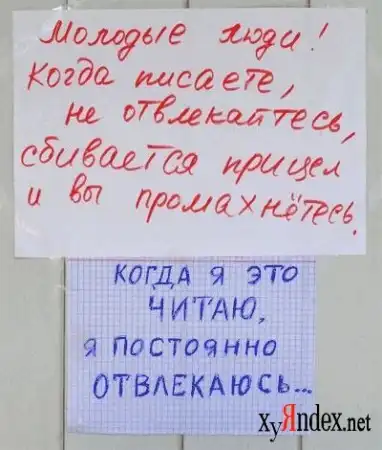 Молодые люди!
Когда писаете,
не отвлекайтесь,
сбивается прицел
и вы промахнётесь.
КОГДА Я ЭТО
ЧИТАЮ,
Я ПОСТОЯННО
ОТВЛЕКАЮСЬ...
XyЯndex.net